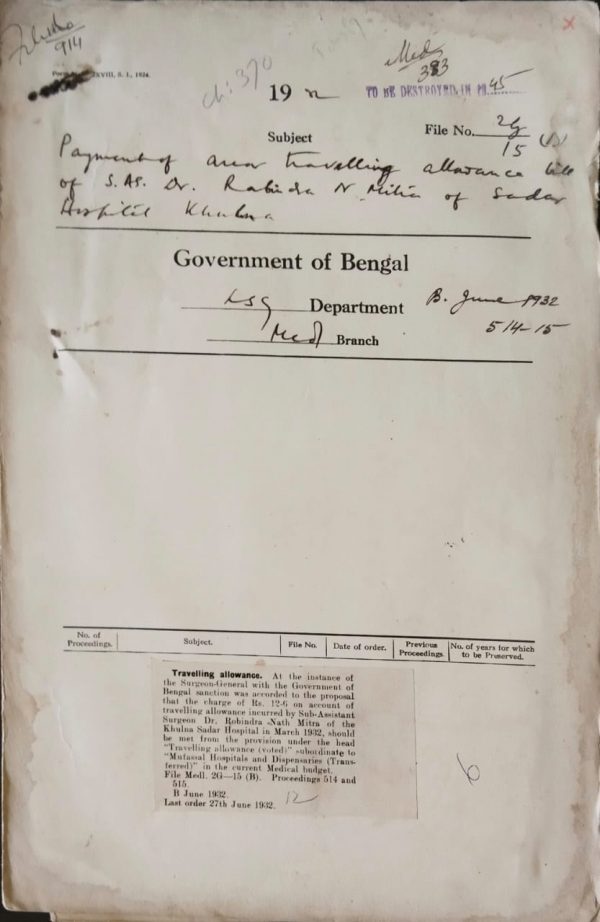 914
XVIII, S. 1, 1924.
ch: 370
Med
383
19 32
TO BE DESTROYED IN 1945
Subject
File No. 2G/15 (B)
Payment of arrear travelling allowance bill
of S. AS. Dr. Rabindra N. Mitra of Sadar
Hospital Khulna
Government of Bengal
LSG Department
B. June 1932
Med Branch
514-15
No. of Proceedings. Subject. File No. Date of order. Previous Proceedings. No. of years for which to be Preserved.
Travelling allowance. At the instance of
the Surgeon-General with the Government of
Bengal sanction was accorded to the proposal
that the charge of Rs. 12-6 on account of
travelling allowance incurred by Sub-Assistant
Surgeon Dr. Robindra Nath Mitra of the
Khulna Sadar Hospital in March 1932, should
be met from the provision under the head
"Travelling allowance (voted)" subordinate to
"Mufassal Hospitals and Dispensaries (Trans-
ferred)" in the current Medical budget.
File Medl. 2G—15 (B). Proceedings 514 and
515.
B June 1932.
Last order 27th June 1932.
12
6